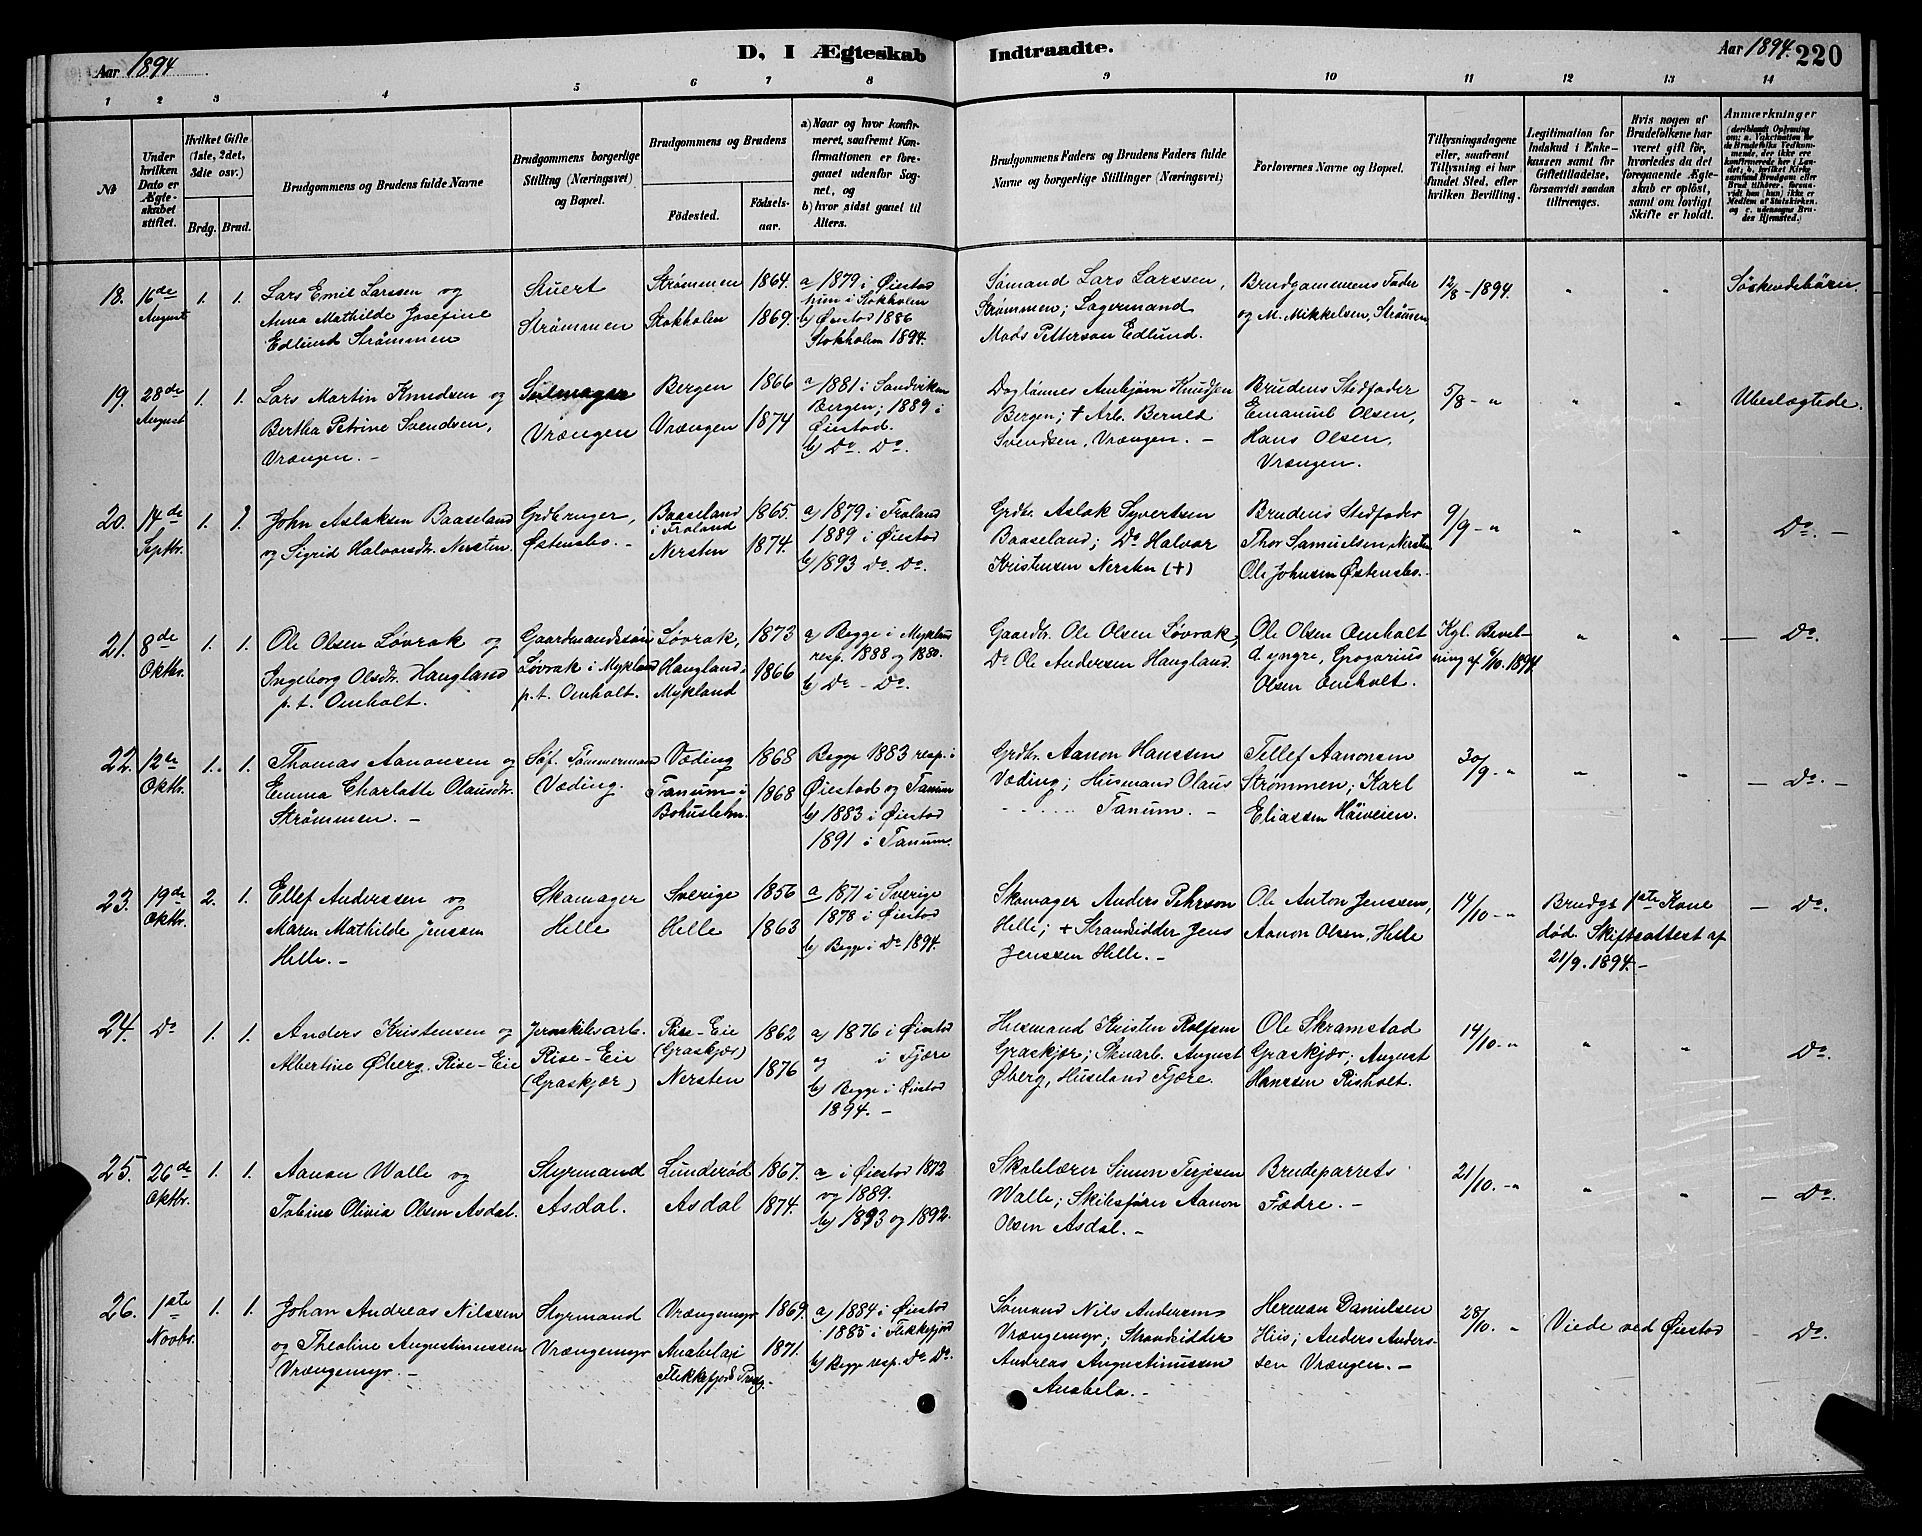 D, I Ægteskab Indtraadte.
Aar 1894
Aar 1894. 220
1 2 3 4 5 6 7 8 9 10 11 12 13 14
№
Under hvilken Dato er Ægteskabet stiftet.
Hvilket Gifte (1ste, 2det, 3die osv.)
Brdg. Brud.
Brudgommens og Brudens fulde Navne
Brudgommens borgerlige Stilling (Næringsvei) og Bopæl.
Brudgommens og Brudens
Födested.
Födselsaar.
a) Naar og hvor konfirmeret, saafremt Konfirmationen er foregaaet udenfor Sognet, og
b) hvor sidst gaaet til Alters.
Brudgommens Faders og Brudens Faders fulde Navne og borgerlige Stillinger (Næringsvei)
Forlovernes Navne og Bopæl.
Tillysningsdagene eller, saafremt Tillysning ei har fundet Sted, efter hvilken Bevilling.
Legitimation for Indskud i Enkekassen samt for Giftetilladelse, forsaavidt saadan tiltrænges.
Hvis nogen af Brudefolkene har været gift før, hvorledes da det foregaaende Ægteskab er oplöst, samt om lovligt Skifte er holdt.
Anmærkninger
(deriblandt Oplysning om: a. Vakcination for de Brudefolks Vedkommende, der ikke ere konfirmerede her i Landet, b. hvilket Kirkesamfund Brudgom eller Brud tilhører, forsaavidt han (hun) ikke er Medlem af Statskirken, og c. udensogns Brudes Hjemsted.
18. 16de August 1. 1.
Lars Emil Larssen og
Anna Mathilde Josefine
Edlund Strømmen
Stuert
Strømmen
Strømmen 1864.
Stokholm 1869.
a 1879 i Øiestad
hun i Stokholm
b) Øiestad 1886
Stokholm 1894.
Sømand Lars Larssen,
Strømmen; Lagermand
Mads Petterson Edlund.
Brudgommens Fader
og M. Mikkelsen, Strømmen
12/8 - 1894.
" "
Söskendebörn.
19. 28de August 1. 1.
Lars Martin Knudsen og
Bertha Petrine Svendsen,
Vrængen. -
Seilmager
Vrængen
Bergen 1866
Vrængen 1874
a 1881 i Sandviken
Bergen; 1889 i
Øiestad.
b) Do. Do.
Daglönnes Anbjørn Knudsen
Bergen; + Arb. Bernt
Svendsen, Vrængen. -
Brudens Stedfader
Emanuel Olsen,
Hans Olsen,
Vrængen.
5/8 - "
" "
Ubeslægtede.
20. 14de Septbr. 1. 1.
John Aslaksen Baaseland
og Sigrid Halvorsdtr. Nersten.
Grdbruger,
Østensbo. -
Baaseland i Froland 1865.
Nersten 1874.
a) 1879 i Froland
1889 i Øiestad
b) 1893 Do. Do.
Grdbr. Aslak Syvertsen
Baaseland; Do Halvor
Kristensen Nersten (+)
Brudens Stedfader
Thor Samuelsen, Nersten
Ole Johnsen Østensbo.
9/9 - "
" "
Do. -
21. 8de Oktbr. 1. 1.
Ole Olsen Løvrak og
Ingeborg Olsdtr. Haugland
p. t. Omholt.
Gaardmandssön
Løvrak i Mykland
p. t. Omholt.
Løvrak, 1873
Haugland i Mykland 1866
a) Begge i Mykland
resp. 1888 og 1880.
b) Do - Do.
Gaardbr. Ole Olsen Løvrak;
Do Ole Andersen Haugland.
Ole Olsen Omholt
d. yngre, Gregarius
Olsen Omholt.
Kgl. Bevilning af 6/10. 1894
" "
- Do.
22. 12te Oktbr. 1. 1.
Thomas Aanonsen og
Emma Charlotte Olausdtr.
Strømmen. -
Søf. Tømmermand
Væding.
Væding 1868
Tanum i Bohuslehn. 1868
Begge 1883 resp. i
Øiestad og Tanum
b) 1883 i Øiestad
1891 i Tanum.
Grdbr. Aanon Hanssen
Væding; Husmand Olaus
- - - - Tanum. -
Tellef Aanonsen
Strømmen; Karl
Eliassen Håiveien.
30/9 - "
" "
- Do. -
23. 19de Oktbr. 2. 1.
Ellef Anderssen og
Maren Mathilde Jenssen
Helle. -
Skomager
Helle
Sverige 1856
Helle 1863
a 1871 i Sverige
1878 i Øiestad
b) Begge i Do 1894.
Skomager Anders Pehrson
Helle; + Strandsidder Jens
Jenssen Helle. -
Ole Anton Jenssen,
Aanon Olsen, Helle
14/10 - "
Brudgs 1ste Kone
död. Skifteattest af
21/9. 1894. -
- Do.
24. Do 1. 1.
Anders Kristensen og
Albertine Øberg, Rise-Eie
Jernskibsarb.
Rise-Eie
(Graskjær)
Rise-Eie (Graskjær) 1862
Nersten 1876
a) 1876 i Øiestad
og i Fjære
b) Begge i Øiestad
1894. -
Husmand Kristen Rolfsen
Graskjær; Stenarb. August
Øberg, Huseland Fjære.
Ole Skramstad
Graskjær; August
Hanssen Risholt.
14/10 - "
" "
Do.
25. 26de Oktbr. 1. 1.
Aanon Walle og
Tobine Olivia Olsen Asdal.
Styrmand
Asdal.
Lunderød 1867.
Asdal 1874.
a i Øiestad 1872
og 1889.
b) 1893 og 1892.
Skolelærer Simon Terjesen
Walle; Skibsfører Aanon
Olsen Asdal. -
Brudeparrets
Fædre. -
21/10. - "
" "
- Do.
26. 1ste Novbr. 1. 1.
Johan Andreas Nilssen
og Theoline Augustinussen
Vrængemyr. -
Styrmand
Vrængemyr
Vrængemyr 1869.
Anabeløi Flekkefjords Præstg. 1871.
a) 1884 i Øiestad
1885 i Flekkefjord
b) Begge resp. Do. Do.
Sømand Nils Andersen
Vrængemyr; Strandsidder
Andreas Augustinussen
Anabelø. -
Herman Danielsen
Hiis; Anders Anderssen Vrængen. -
28/10. "
Viede ved Øiestad
- Do.